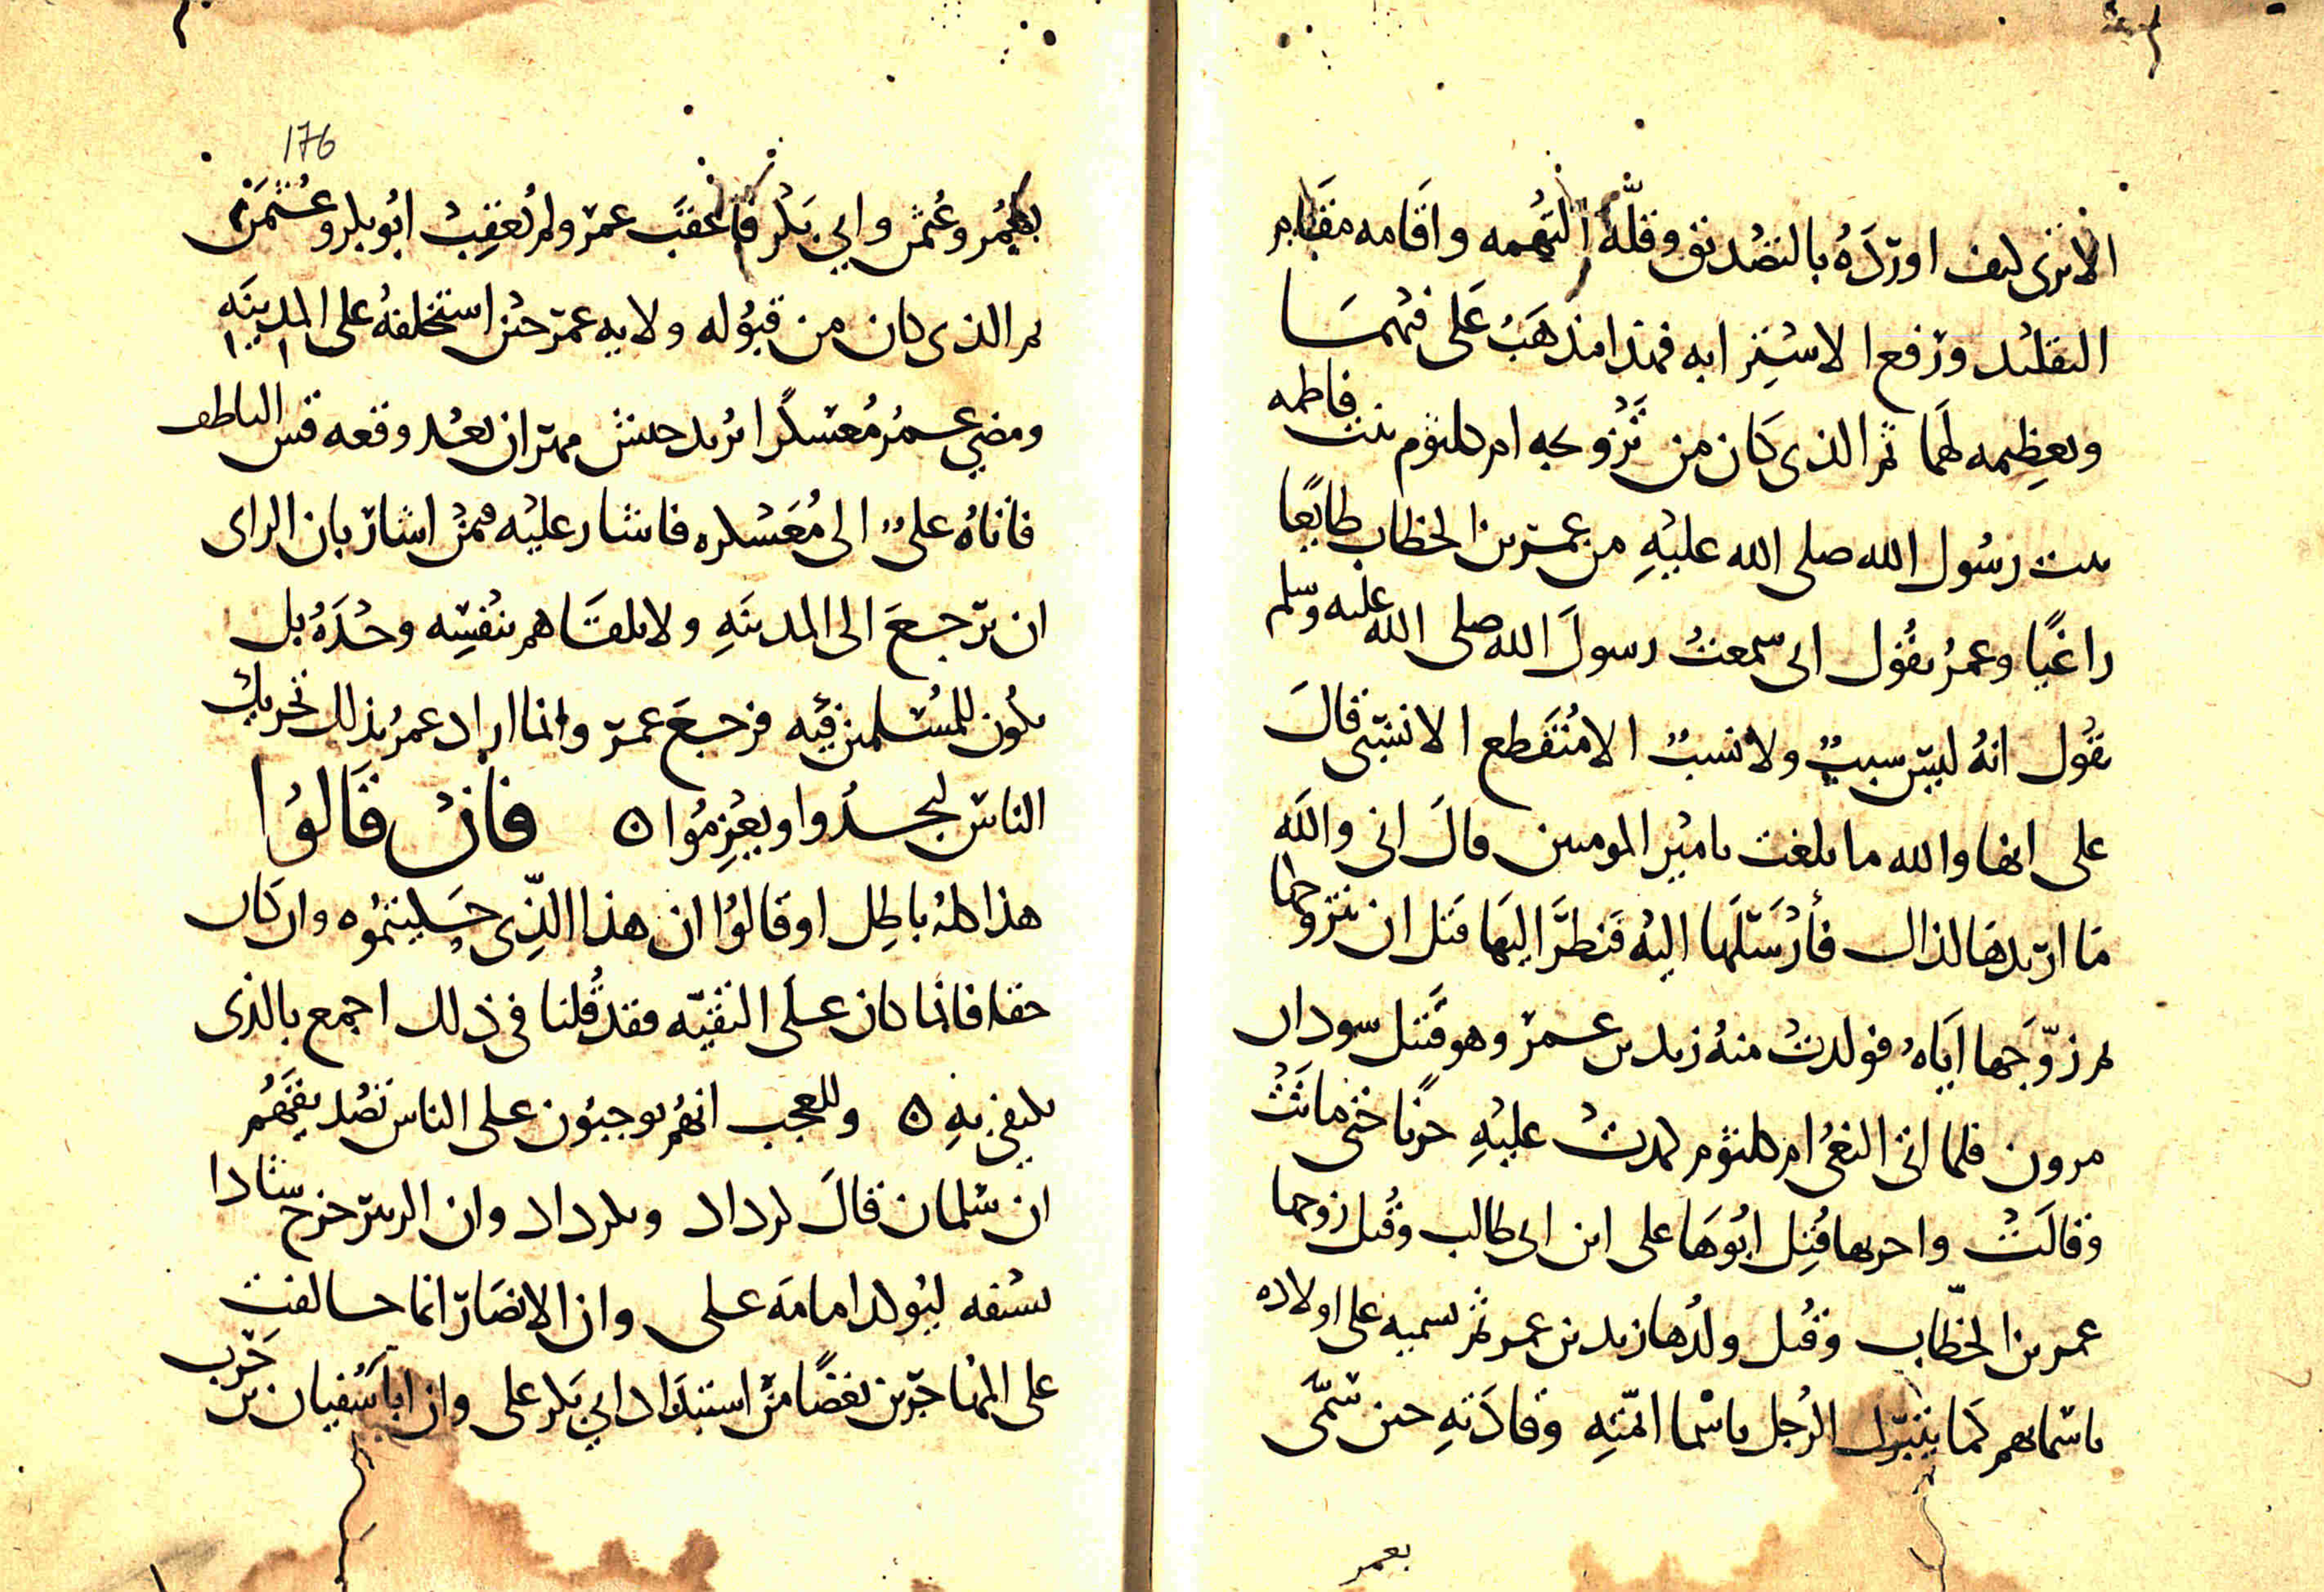 الا ترى كيف اورده بالتصديق وقلة التهمه واقامه مقام
التقليد ورفع الاستبرا به فهذا مذهب على فيهما
وتعظيمه لهما ثم الذي كان من تزويجه ام كلثوم بنت فاطمه
بنت رسول الله صلى الله عليه من عمر بن الخطاب طايعا
راغبا وعمر يقول انى سمعت رسول الله صلى الله عليه وسلم
يقول انه ليس سبب ولا نسب الا منقطع الا نسبى قال
على انها والله ما بلغت يامير المومنين قال انى والله
ما اريدها لذاك فأرسلها اليه فنظر اليها قبل ان يتزوجها
ثم زوجها اياه فولدت منه زيد بن عمر وهو قتيل سودان
مرون فلما اتى النعى ام كلثوم كمدت عليه حزنا حتى ماتت
وقالت واحربها قتل ابوها على ابن ابى طالب وقتل زوجها
عمر بن الخطاب وقتل ولدها زيد بن عمر ثم تسميه على اولاده
باسمايهم كما يتبرك الرجل باسما ائمته وقادته حين سمى
بعمر
176
بعمر وعثمن وابي بكر فاعقب عمر ولم يعقب ابو بكر وعثمن
ثم الذى كان من قبوله ولايه عمر حين استخلفه على المدينه
ومضى عمر معسكرا يريد جيش مهران بعد وقعه قس الناطف
فاتاه على الى معسكره فاشار عليه فيمن اشار بان الراى
ان يرجع الى المدينه ولا يلقاهم بنفسه وحده بل
يكون للمسلمين فيه فرجع عمر وانما اراد عمر بذلك تحريك
الناس ليجدوا ويعزموا ه فان قالوا
هذا كله باطل او قالوا ان هذا الذى حكيتموه وان كان
حقا فانما كان على التقيه فقد قلنا فى ذلك اجمع بالذى
يكتفى به ه وللعجب انهم يوجبون على الناس تصديقهم
ان سلمان قال كرداد ونكرداد وان الزبير خرج شادا
بسيفه ليوكد امامه على وان الانصار انما حالفت
على المهاجرين بغضا من استبداد ابي بكر على وان ابا سفيان بن حرب